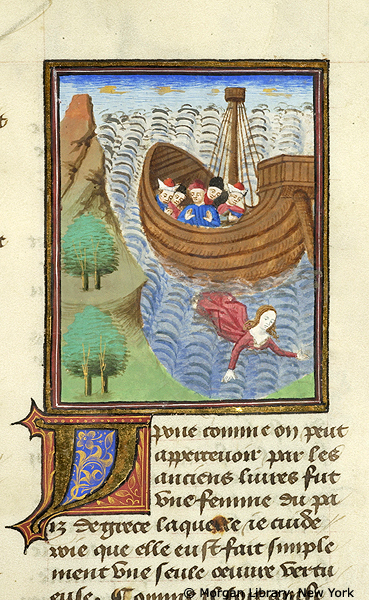 Yppone comme on peut
apperceuoir par les
anciens liures fut
vne femme du pa
iz de grece laquelle ie cuide
roie que elle eust fait simple
ment vne seule oeuure vertu
euse. Comme
© Morgan Library, New York